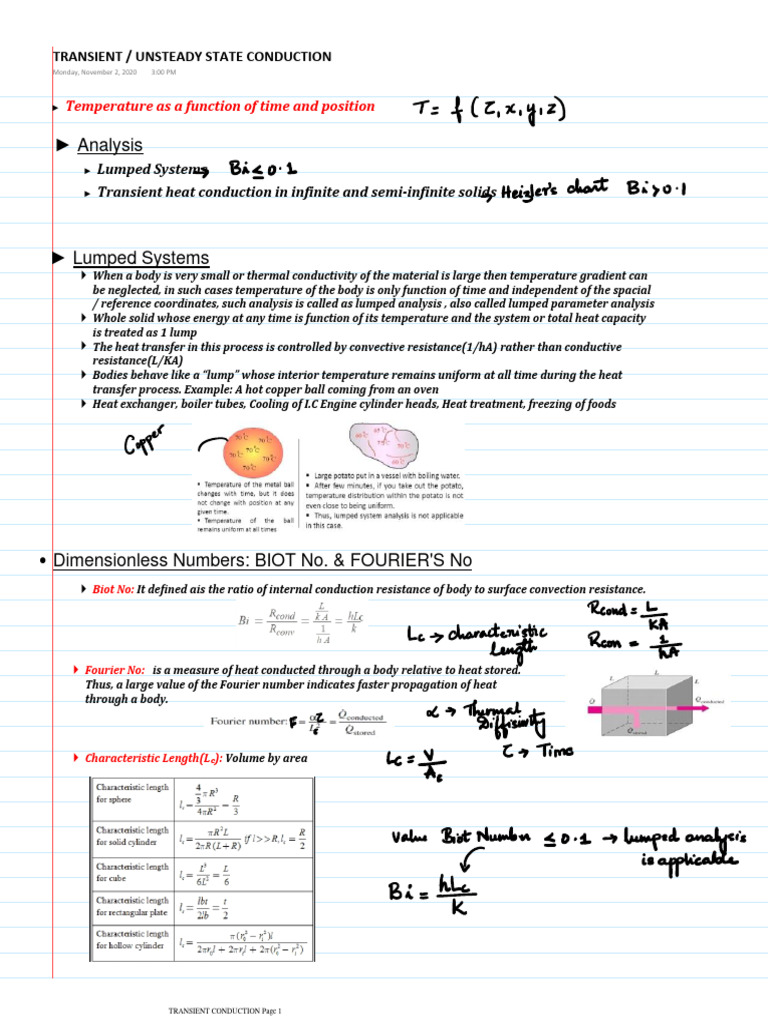 TRANSIENT / UNSTEADY STATE CONDUCTION
Monday, November 2, 2020 3:00 PM
► Temperature as a function of time and position T = f (τ, x, y, z)
► Analysis
► Lumped Systems → Bi ≤ 0.1
► Transient heat conduction in infinite and semi-infinite solids → Heizler's chart Bi > 0.1
► Lumped Systems
When a body is very small or thermal conductivity of the material is large then temperature gradient can
be neglected, in such cases temperature of the body is only function of time and independent of the spacial
/ reference coordinates, such analysis is called as lumped analysis , also called lumped parameter analysis
Whole solid whose energy at any time is function of its temperature and the system or total heat capacity
is treated as 1 lump
The heat transfer in this process is controlled by convective resistance(1/hA) rather than conductive
resistance(L/KA)
Bodies behave like a “lump” whose interior temperature remains uniform at all time during the heat
transfer process. Example: A hot copper ball coming from an oven
Heat exchanger, boiler tubes, Cooling of I.C Engine cylinder heads, Heat treatment, freezing of foods
Copper
70°C 70°C 70°C 70°C 70°C
• Temperature of the metal ball
changes with time, but it does
not change with position at any
given time.
• Temperature of the ball
remains uniform at all times
• Large potato put in a vessel with boiling water.
• After few minutes, if you take out the potato,
temperature distribution within the potato is not
even close to being uniform.
• Thus, lumped system analysis is not applicable
in this case.
• Dimensionless Numbers: BIOT No. & FOURIER'S No
Biot No: It defined ais the ratio of internal conduction resistance of body to surface convection resistance.
Bi = Rcond / Rconv = (L / kA) / (1 / hA) = hLc / k
Lc → characteristic
length
Rcond = L / KA
Rcon = 1 / hA
Fourier No: is a measure of heat conducted through a body relative to heat stored.
Thus, a large value of the Fourier number indicates faster propagation of heat
through a body.
Fourier number: F = ατ / Lc² = Q̇conducted / Q̇stored
α → Thermal
Diffisivity
τ → Time
L L L
Q̇ Q̇conducted
Q̇stored
Characteristic Length(Lc): Volume by area
Lc = V / Ac
Characteristic length
for sphere lc = (4/3 πR³) / 4πR² = R/3
Characteristic length
for solid cylinder lc = πR²L / 2πR(L+R) if l>>R, lc = R/2
Characteristic length
for cube lc = L³ / 6L² = L/6
Characteristic length
for rectangular plate lc = lbt / 2lb = t/2
Characteristic length
for hollow cylinder lc = π(r₀² − ri²)l / 2πr₀l + 2πril + 2π(r₀² − ri²)
Value Biot Number ≤ 0.1 → lumped analysis
is applicable
Bi = hLc / K
TRANSIENT CONDUCTION Page 1